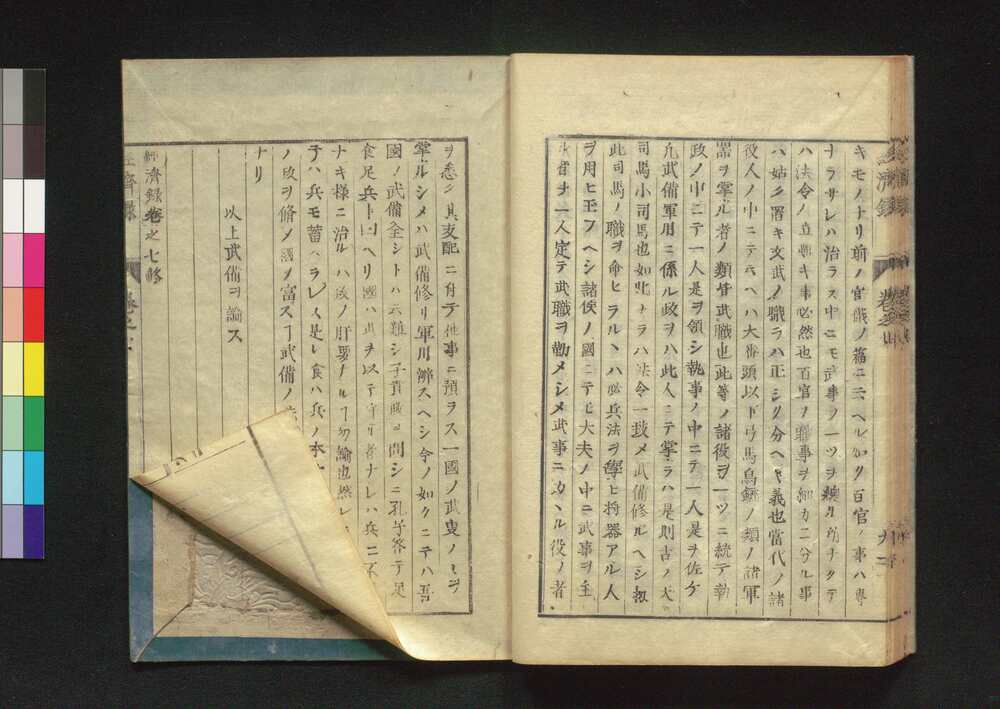 キモノナリ前ノ官職ノ篇ニ云ヘル如ク百官ノ事ハ専
ナラサレハ治ラス中ニモ武事ノ一ツヲ
ハ法令ノ立難キ事必然也百官ノ職事ヲ細カニ分ル事
ハ姑ク置キ文武ノ職ヲハ正シク分ヘキ義也當代ノ諸
役人ノ中ニテ云ヘハ大番頭以下弓馬鳥銃ノ類ノ諸軍
器ヲ掌ル者ノ類皆武職也此等ノ諸役ヲ一ツニ統テ執
政ノ中ニテ一人是ヲ領シ執事ノ中ニテ一人是ヲ佐ケ
凡武備軍用ニ係ル政ヲハ此人ニテ掌ラハ是則古ノ大
司馬小司馬也如此ナラハ法令一致メ武備修ルヘシ扨
此司馬ノ職ヲ命セラルヽハ必兵法ヲ學ヒ将器アル人
ヲ用ヒ玉フヘシ諸侯ノ國ニテモ大夫ノ中ニ武事ヲ主
ル者ヲ一人定テ武職ヲ勤メシメ武事ニカヽル役ノ者
ヲ悉ク其支配ニ付テ他事ニ預ラス一國ノ武叓ノミヲ
掌ルシメハ武備修リ軍用辨スヘシ今ノ如クニテハ吾
國ノ武備全シトハ云難シ子貢政ヲ問シニ孔子答テ足
食足兵ト曰ヘリ國ハ兵ヲ以テ守リ者ナレハ兵ニ不
ナキ様ニ治ルハ政ノ肝要ナルヿ勿論也然レ
テハ兵モ蓄ハラレス是レ食ハ兵ノ本
ノ政ヲ修メ國ヲ富スヿ武備ノ
ナリ
以上武備ヲ論ス
經濟録卷之七終